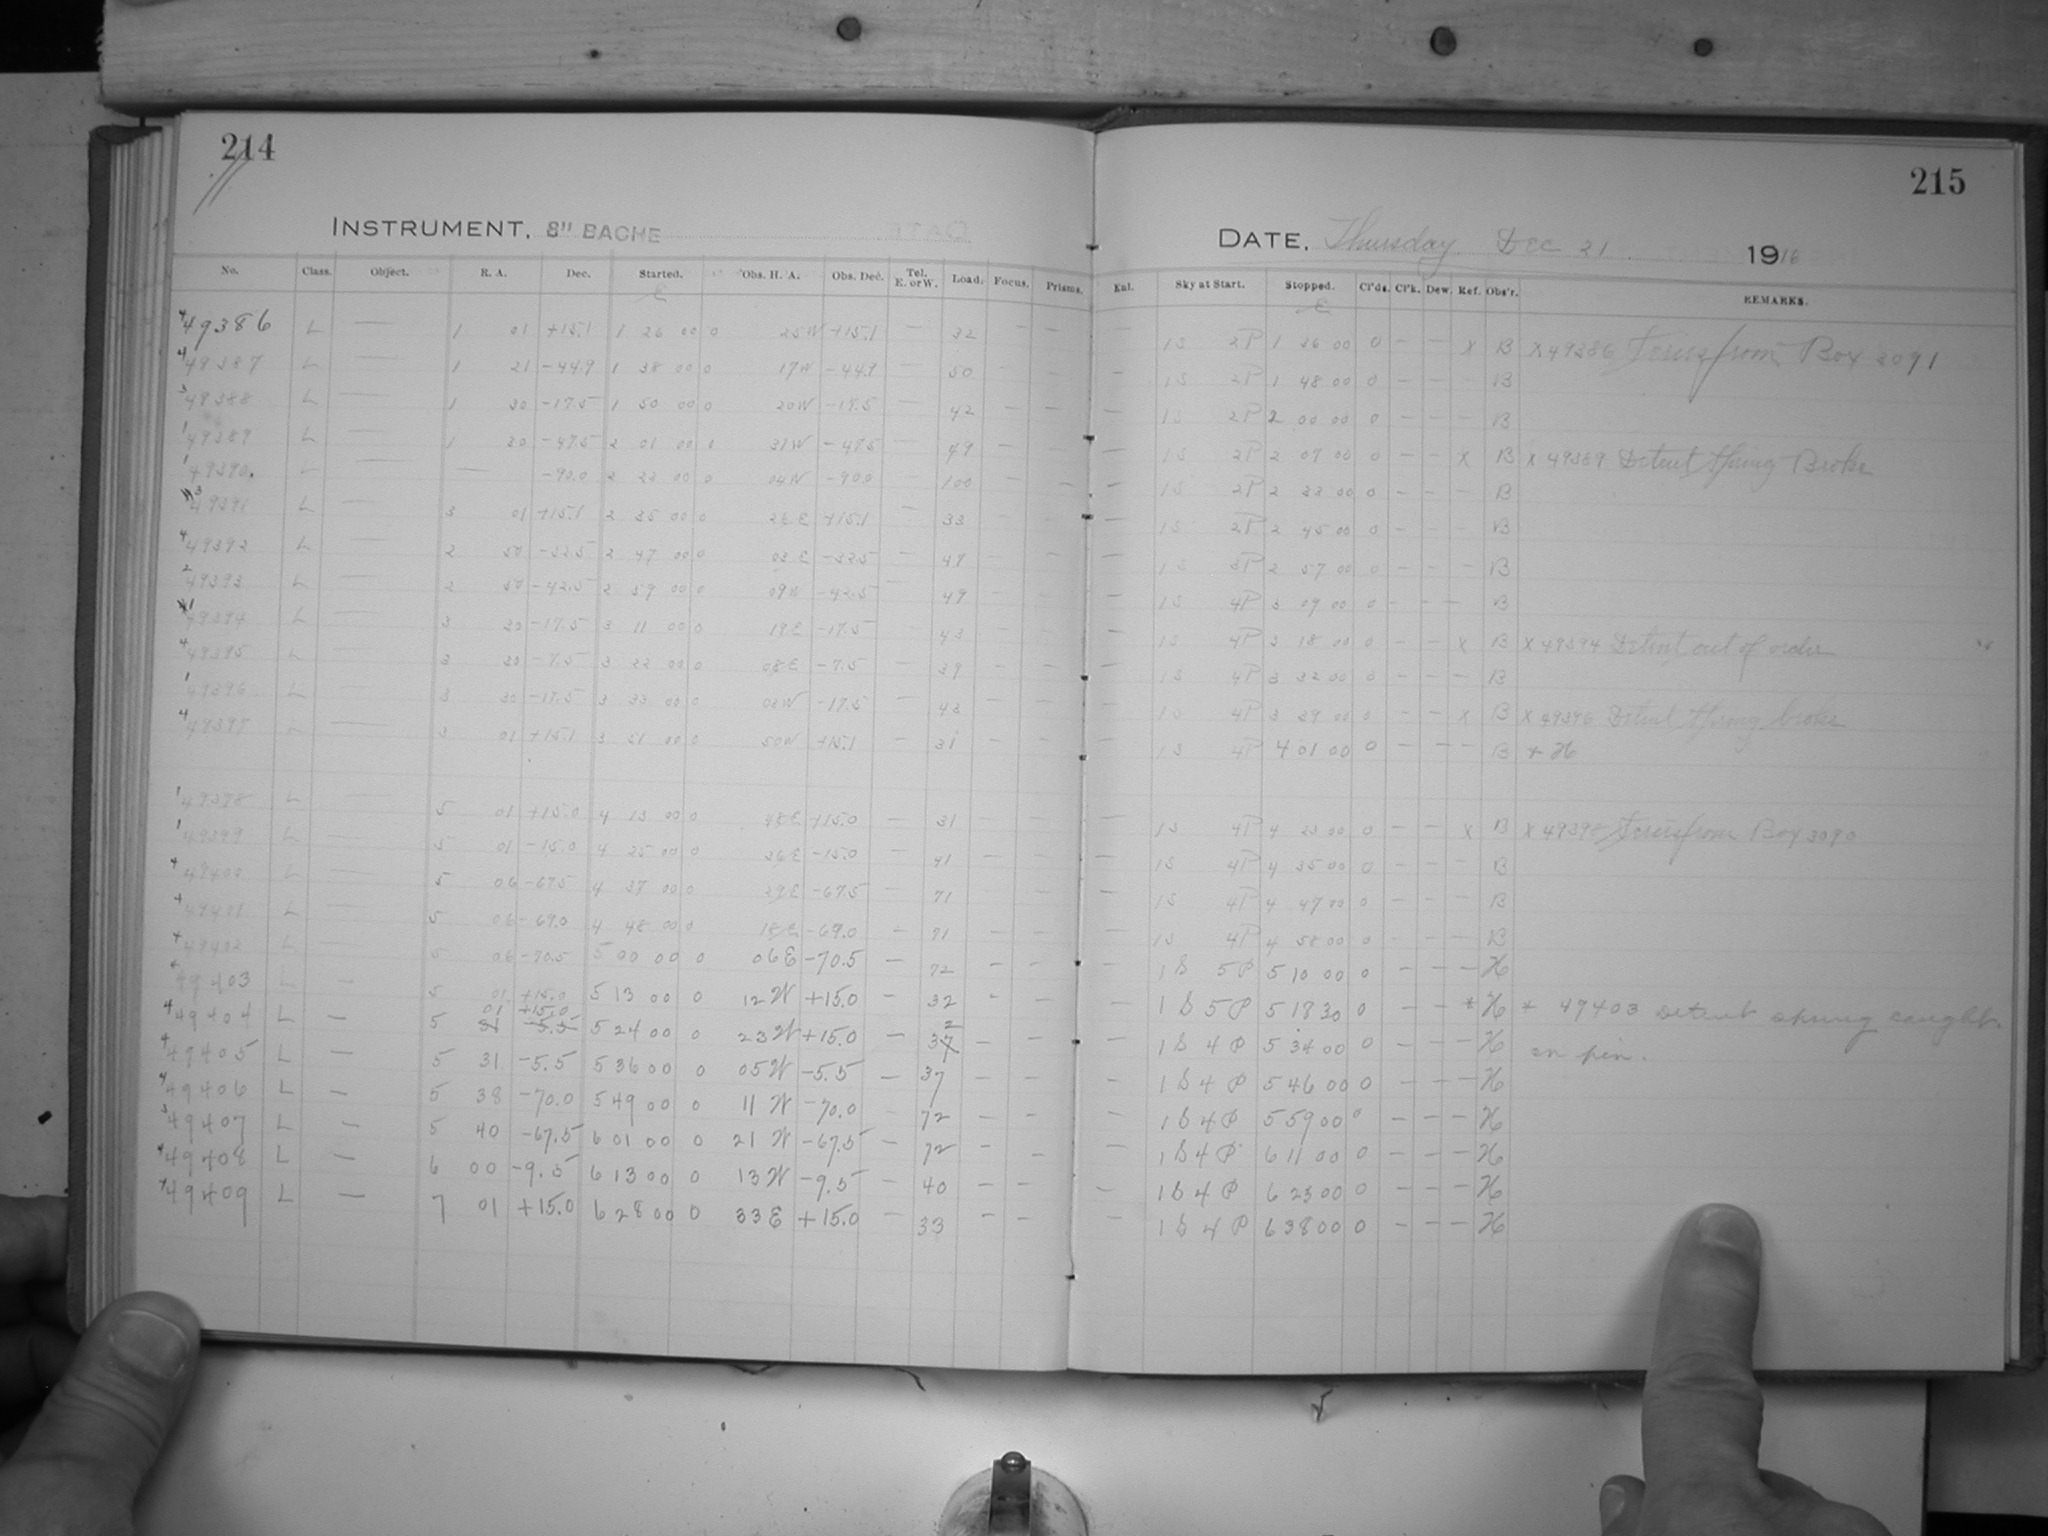 214
215
INSTRUMENT. 8" BACHE
DATE. Thursday Dec 21. 1916
No. Class. Object. R. A. Dec. Started. Obs. H. A. Obs. Dec. Tel. E. or W. Load. Focus. Prisms. Eul. Sky at Start. Stopped. Cl'ds. Cl'k. Dew. Ref. Obs'r. REMARKS.
4 49386 L — 1 01 +15.1 1 26 00 0 25W +15.1 32 — — — 1S 2P 1 36 00 0 — — X B X 49386 Box 3091
4 49387 L — 1 21 -44.9 1 38 00 0 17W -44.9 — 50 — — — 1S 2P 1 48 00 0 — — — B
3 49388 L — 1 30 -17.5 1 50 00 0 20W -17.5 — 42 — — — 1S 2P 2 00 00 0 — — — B
1 49389 L — 1 30 -47.5 2 01 00 0 31W -47.5 — 49 — — — 1S 2P 2 07 00 0 — — X B X 49389 Detent Spring Broke
1 49390 L — — -90.0 2 23 00 0 04W -90.0 — 100 — — — 1S 2P 2 33 00 0 — — — B
3 49391 L — 3 01 +15.1 2 35 00 0 26E +15.1 — 33 — — — 1S 2P 2 45 00 0 — — — B
4 49392 L — 2 50 -32.5 2 47 00 0 03E -32.5 — 47 — — — 1S 2 57 00 0 — — — B
2 49393 L — 2 50 -42.5 2 59 00 0 09W -42.5 — 49 — — — 1S 4P 3 09 00 0 — — — B
1 49394 L — 3 30 -17.5 3 11 00 0 19E -17.5 — 43 — — — 1S 4P 3 18 00 0 — — X B X 49394 Detent out of order
4 49395 L — 3 30 -7.5 3 22 00 0 08E -7.5 — 39 — — — 1S 4P 3 32 00 0 — — — B
1 49396 L — 3 30 -17.5 3 33 00 0 03W -17.5 — 43 — — — 1S 4P 3 39 00 0 — — X B X 49396 Detent Spring broke
4 49397 L — 3 01 +15.1 3 51 00 0 50W +15.1 — 31 — — — 1S 4P 4 01 00 0 — — — B + H
1 49398 L — 5 01 +15.0 4 13 00 0 48E +15.0 — 31 — — — 1S 4P 4 23 00 0 — — X B X 49398 Box 3090
1 49399 L — 5 01 -15.0 4 25 00 0 36E -15.0 — 41 — — — 1S 4P 4 35 00 0 — — — B
4 49400 L — 5 06 -67.5 4 37 00 0 29E -67.5 — 71 — — — 1S 4P 4 47 00 0 — — — B
4 49401 L — 5 06 -69.0 4 48 00 0 18E -69.0 — 71 — — — 1S 4P 4 58 00 0 — — — B
4 49402 L — 5 06 -70.5 5 00 00 0 06E -70.5 — 72 — — — 1S 5P 5 10 00 0 — — — H
49403 L — 5 01 +15.0 5 13 00 0 12W +15.0 — 32 — — — 1S 5P 5 18 30 0 — — * H * 49403 Detent spring caught
on pin.
4 49404 L — 5 01 +15.0 5 24 00 0 23W +15.0 — 32 — — — 1S 4P 5 34 00 0 — — — H
4 49405 L — 5 31 -5.5 5 36 00 0 05W -5.5 — 37 — — — 1S 4P 5 46 00 0 — — — H
4 49406 L — 5 38 -70.0 5 49 00 0 11W -70.0 — 72 — — — 1S 4P 5 59 00 0 — — — H
3 49407 L — 5 40 -67.5 6 01 00 0 21W -67.5 — 72 — — — 1S 4P 6 11 00 0 — — — H
4 49408 L — 6 00 -9.5 6 13 00 0 13W -9.5 — 40 — — — 1S 4P 6 23 00 0 — — — H
4 49409 L — 7 01 +15.0 6 28 00 0 33E +15.0 — 33 — — — 1S 4P 6 38 00 0 — — — H